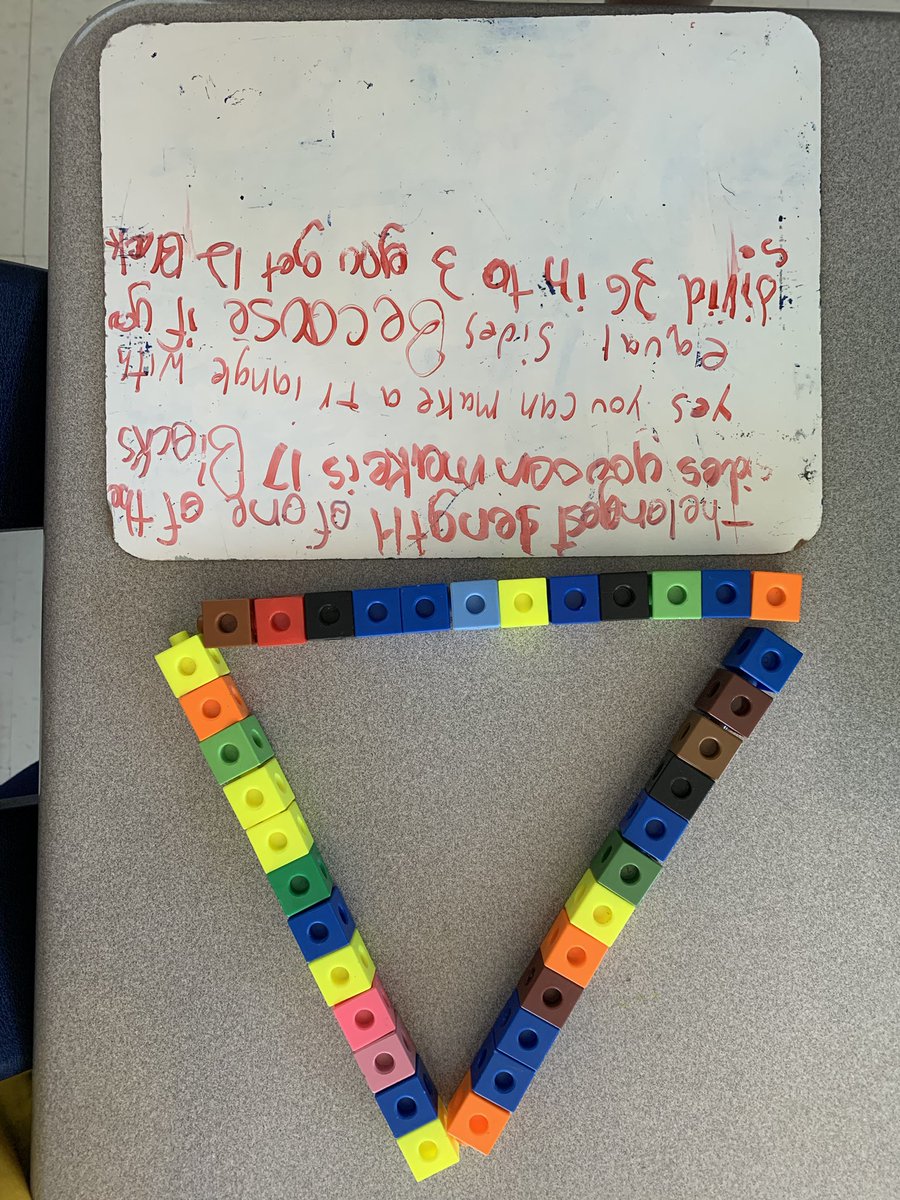 The longest length of one of the
sides you can make is 17 Blocks
yes you can make a triangle with
equal sides Becouse if you
divid 36 in to 3 you get 12 Block
s.